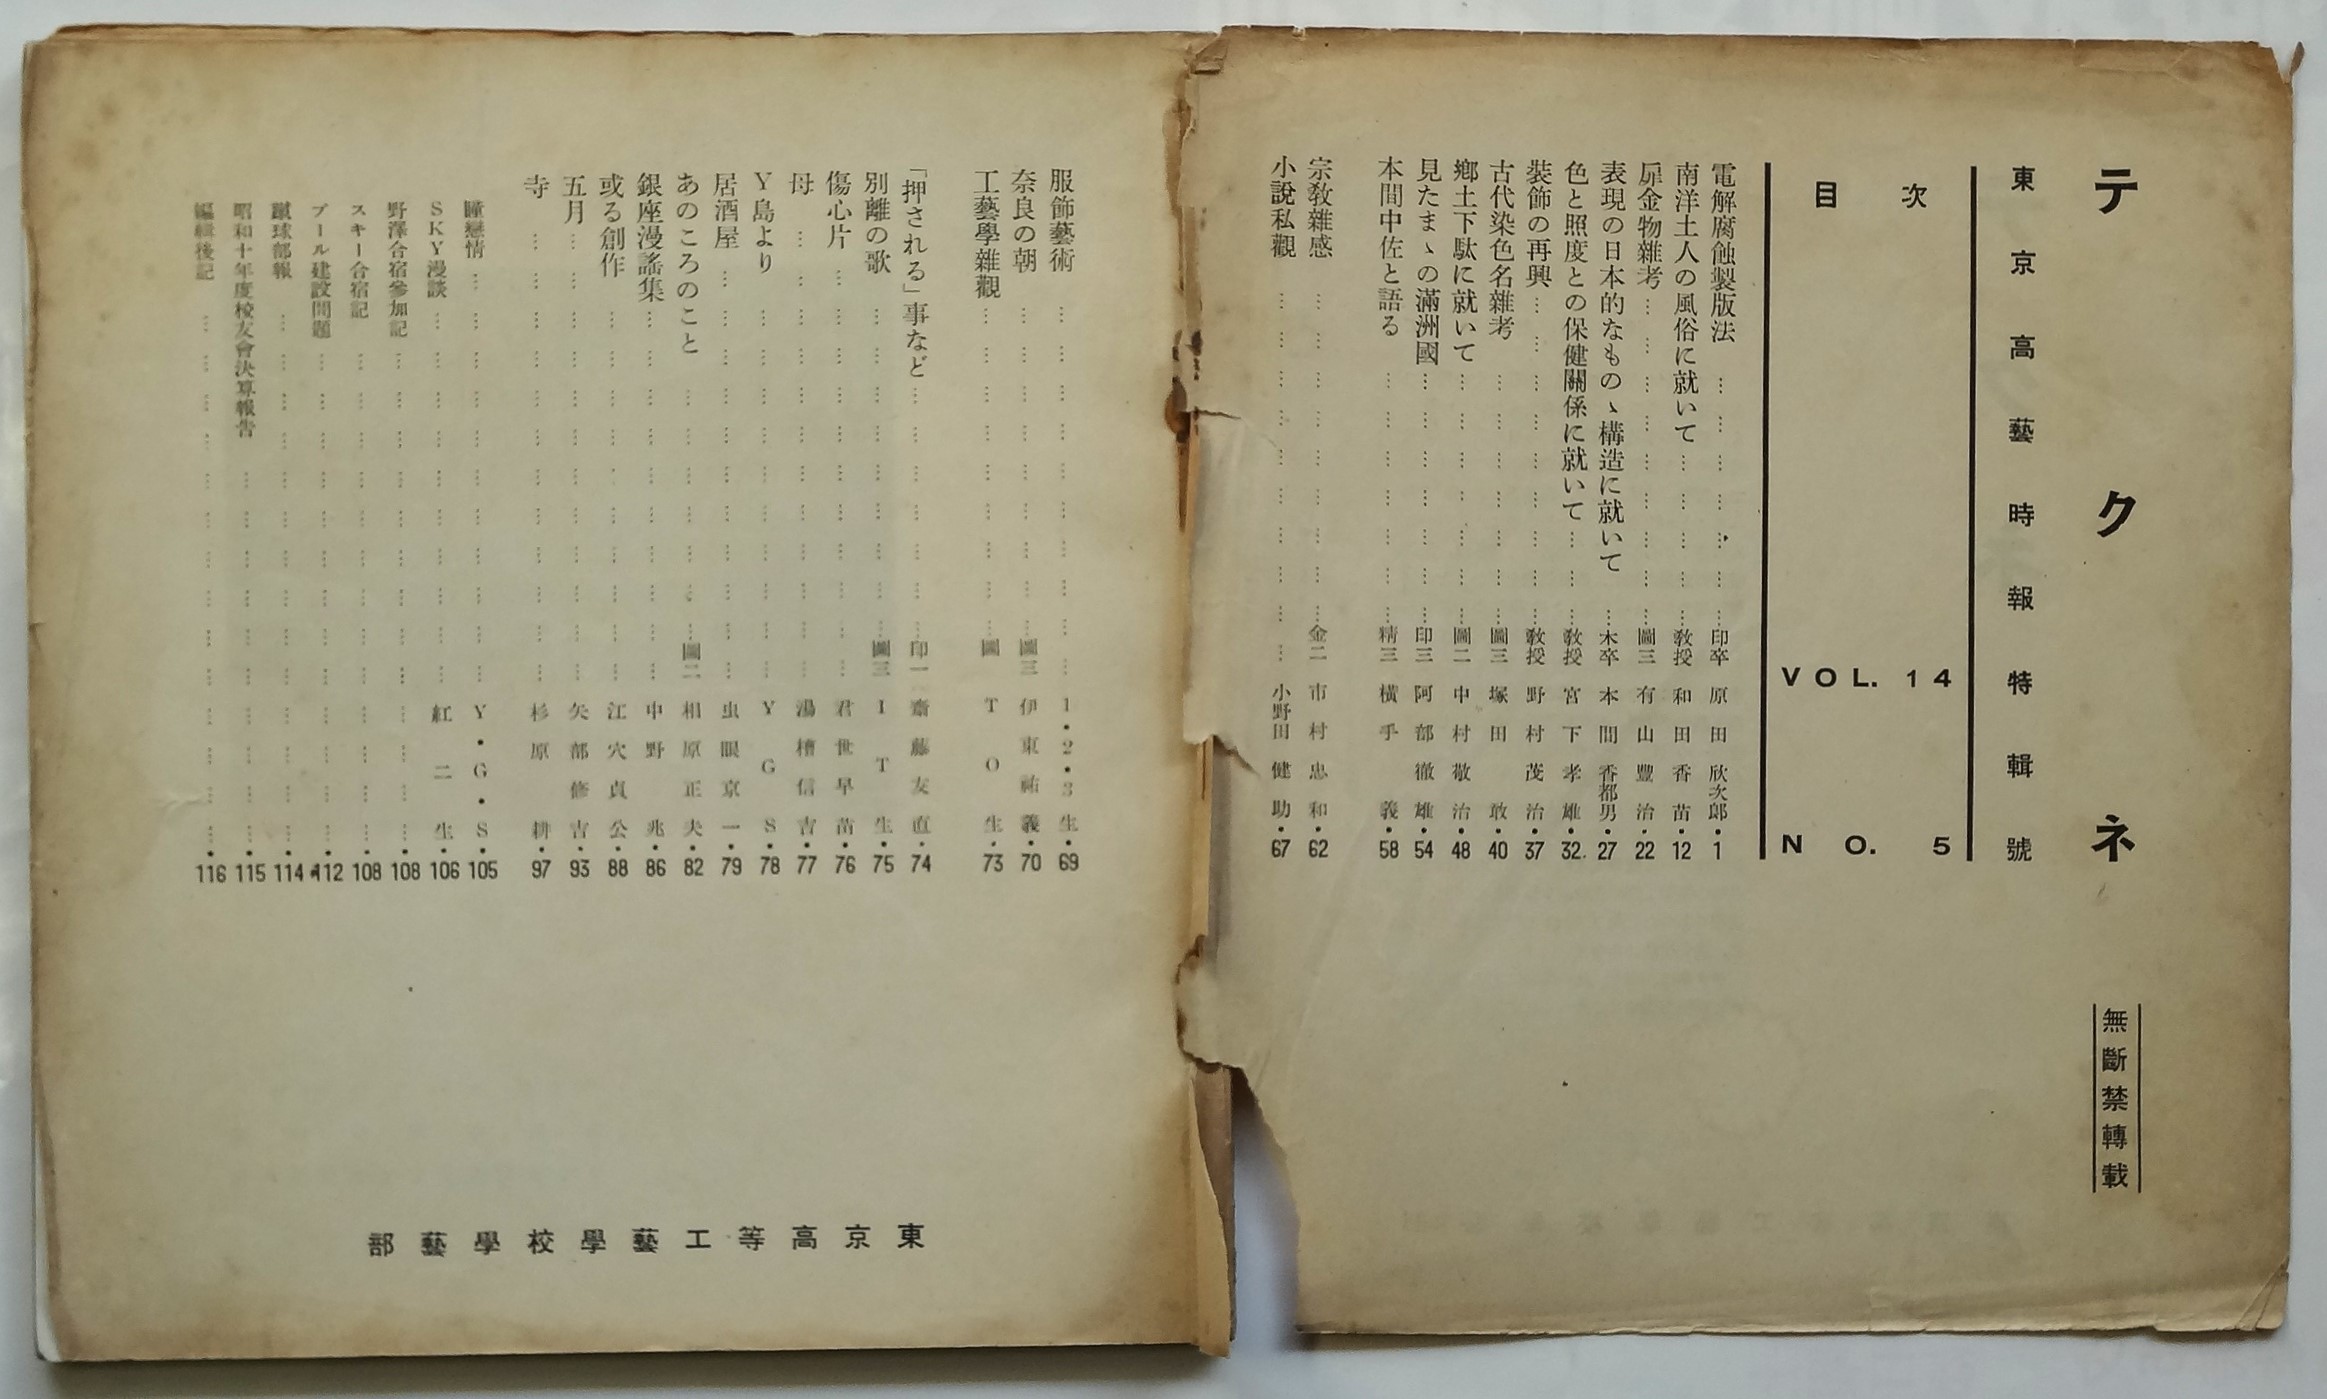 テクネ
無斷禁轉載
東京高藝時報特輯號
目次 VOL. 14 NO. 5
電解腐蝕製版法……印卒 原田欣次郎・1
南洋土人の風俗に就いて……敎授 和田香苗・12
扉金物雜考……圖三 有山豐治・22
表現の日本的なものゝ構造に就いて…木卒 本間香都男・27
色と照度との保健關係に就いて……敎授 宮下孝雄・32
裝飾の再興……敎授 野村茂治・37
古代染色名雜考……圖三 塚田敢・40
鄕土下駄に就いて……圖二 中村敬治・48
見たまゝの滿洲國……印三 阿部徹雄・54
本間中佐と語る……精三 橫手義・58
宗敎雜感……金二 市村忠和・62
小說私觀……小野田健助・67
服飾藝術……1・2・3生・69
奈良の朝……圖三 伊東祐義・70
工藝學雜觀……圖 TO生・73
「押される」事など……印一 齋藤友直・74
別離の歌……圖三 IT生・75
傷心片……君世早苗・76
母……湯檜信吉・77
Y島より……YGS・78
居酒屋……虫眼京一・79
あのころのこと……圖二 相原正夫・82
銀座漫謠集……中野兆・86
或る創作……江穴貞公・88
五月……矢部修吉・93
寺……杉原耕・97
瞳戀情……Y・G・S・105
SKY漫談……紅二生・106
野澤合宿參加記……108
スキー合宿記……108
プール建設問題……112
蹴球部報……114
昭和十年度校友會決算報吿……115
編輯後記……116
東京高等工藝學校學藝部